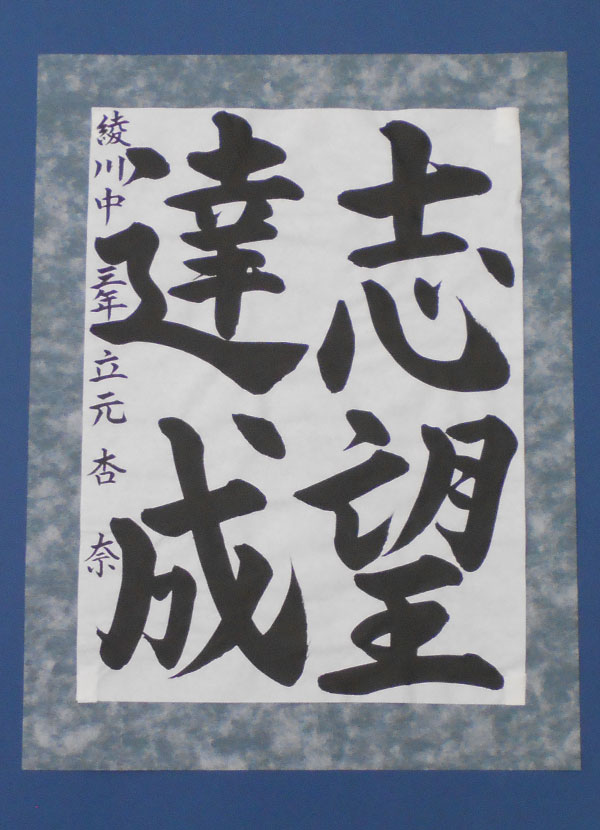 志望
達成
綾川中 三年 立元 杏奈